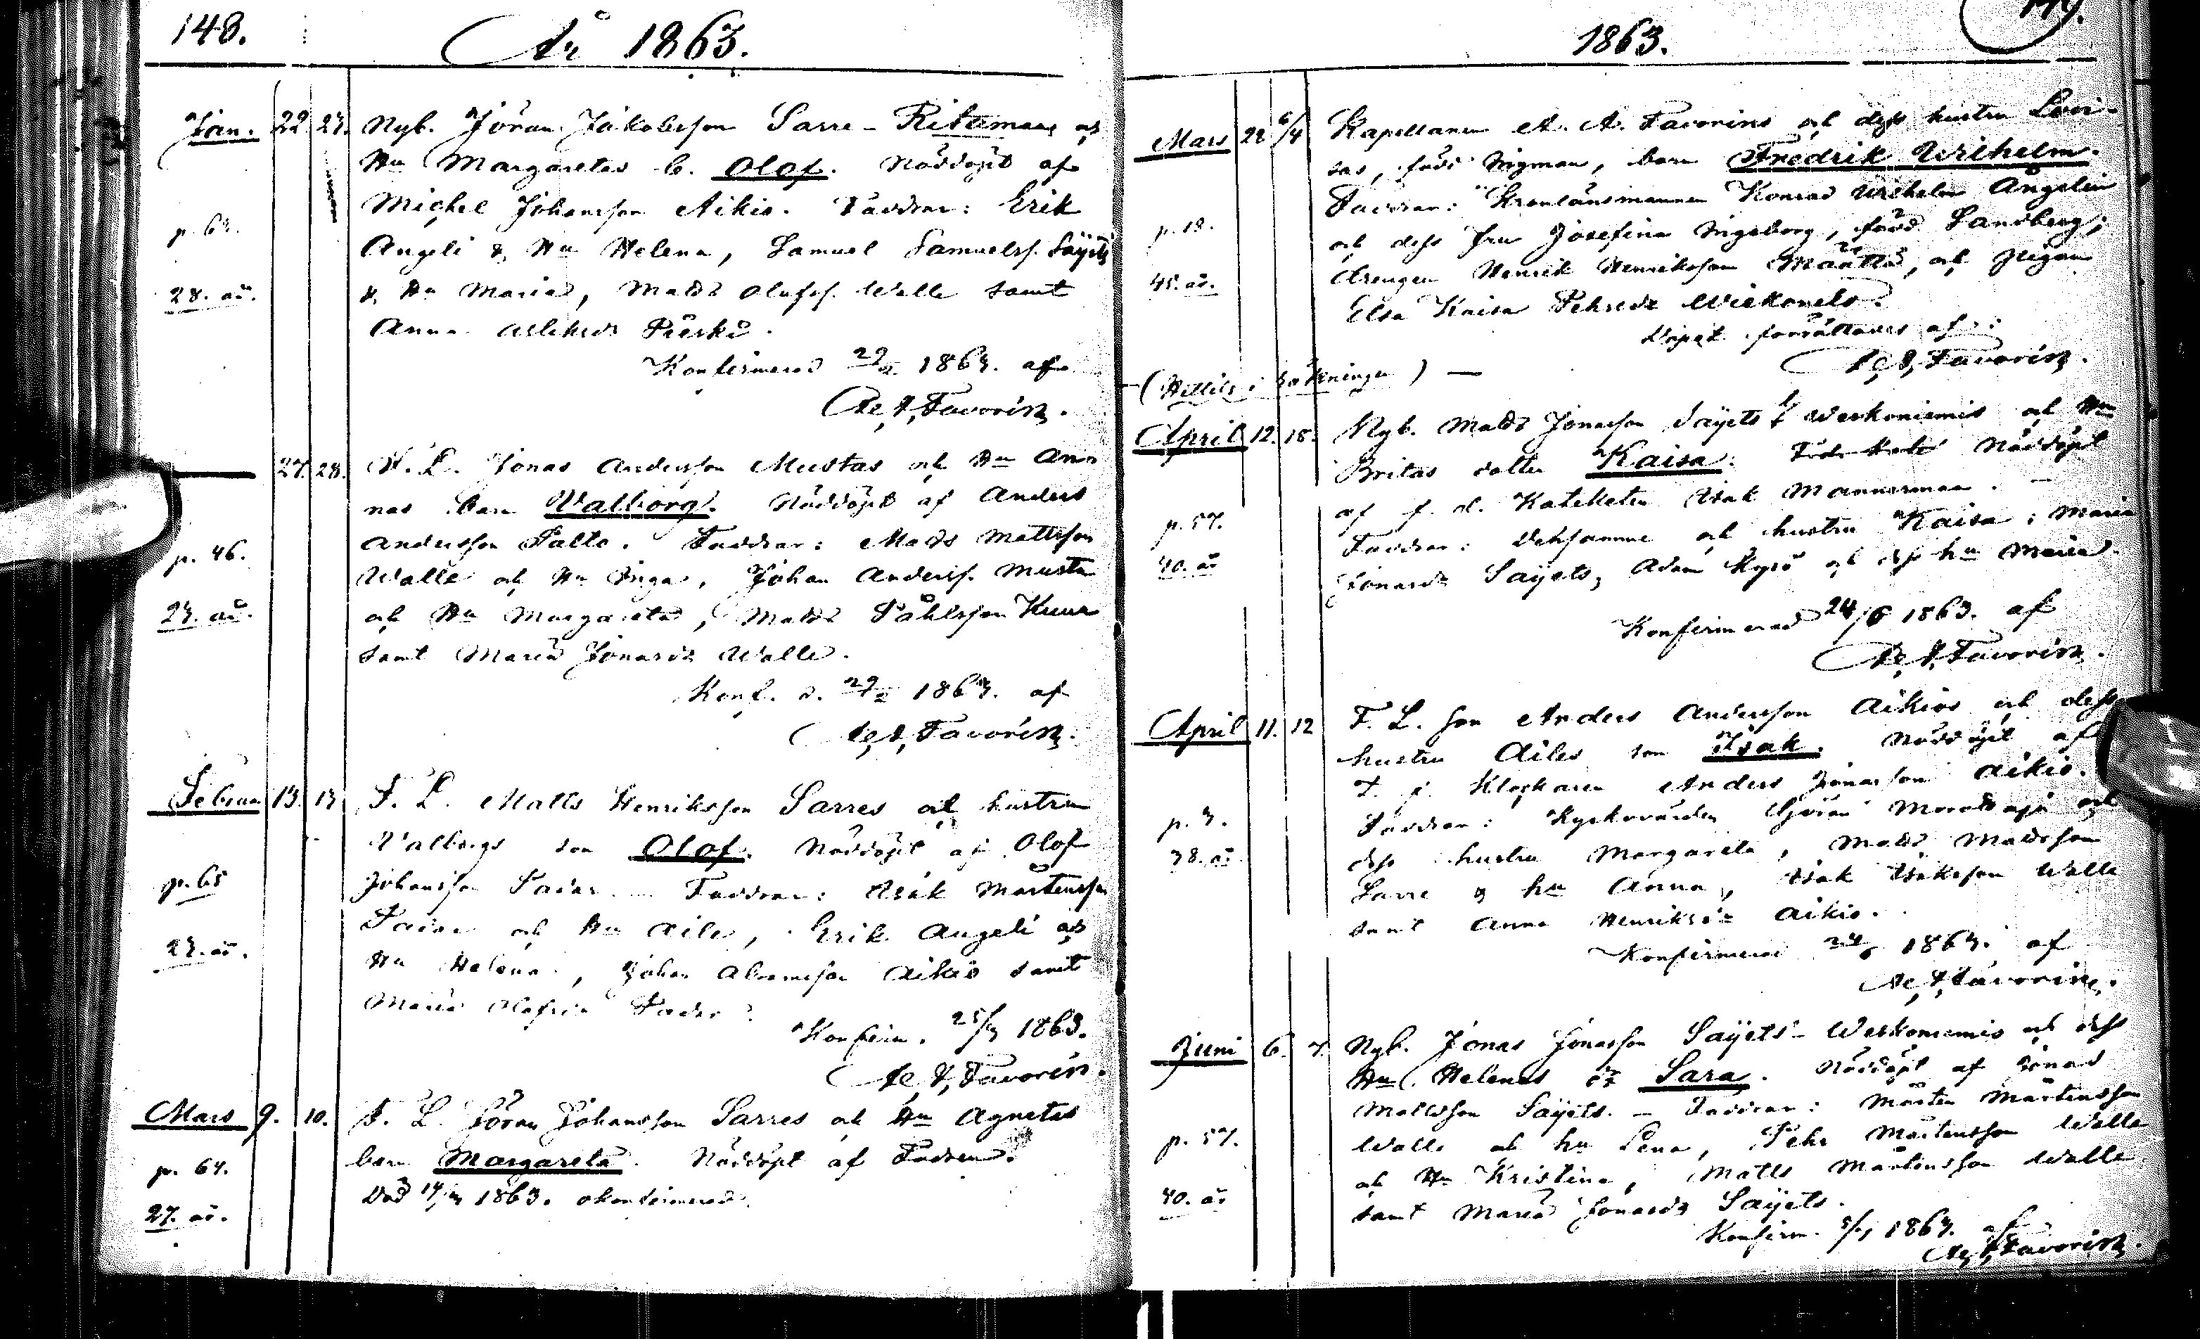 148.
År 1863.
Jan. 22. 27. Nyb. Jöran Jakobsson Sarre - Ritamaas och
Hu Margaretas b. Olof. Nöddöpt af
p. 63. Michel Johansson Aikio. Faddrar: Erik
Angeli & Hu Helena, Samuel Samuelss. Sajets
28. år. & Hu Maria, Mats Olofss. Walle samt
Anna Pieski.
Konfirmerad 1863. af
A. A. Favorin.
27. 28. F. L. Jonas Andersson Mustas och Hu An-
nas barn Walborg. Nöddöpt af Anders
Andersson Palto. Faddrar: Mads Mattsson
p. 46. Walle och Hu Inga, Johan Anderss. Musta
23. år. och Hu Margareta, Mats Påhlsson Kuur
samt Maria Jonasdr Walle.
Konf. d. 1863. af
A. A. Favorin.
Februar 13. 13 F. L. Matts Henriksson Sarres och hustru
Walborgs son Olof. Nöddöpt af Olof
p. 65 Johansson Sadar. Faddrar: Isak Mårtensson
och Hu Aile, Erik Angeli och
23. år. Hu Helena, Johan Abramsson Aikio samt
Maria Olofsdr
Konfirm. 25/3 1863.
A. A. Favorin.
Mars 9. 10. F. L. Jöran Johansson Sarres och Hu Agnetas
p. 64. barn Margareta. Nöddöpt af Fadren.
27. år. Död 1863. okonfirmerad.
1863.
149.
Mars 22 6/4 Kapellanen A. A. Favorins och dess hustru Lovi-
sas, född Nigman, barn Fredrik Wilhelm.
Faddrar: Kronlänsmannen Konrad Wilhelm Ängelin
p. 18. och dess fru Josefina Ingeborg, född Sandberg;
45. år. drengen Henrik Henriksson Määttä, och pigan
Elsa Kaisa Pehrsdr
Dopet förrättades af:
A. A. Favorin.
April 12. 18. Nyb. Mats Jonasson Sajets och Hu
Britas dotter Kaisa. Nöddöpt
p. 57. af f. d. Kateketen Isak Mannermaa.
40. år Faddrar: Densamme och hustru Kaisa; Maria
Jonasdr Sajets, Adam Kyrö och dess hu Maria.
Konfirmerad 24/6 1863. af
A. A. Favorin.
April 11. 12 F. L. son Anders Andersson Aikios och dess
hustru Ailes son Isak. Nöddöpt af
Klockaren Anders Jonasson Aikio.
p. 3. Faddrar: Kyrkovärden Jöran Morottaja och
38. år. dess hustru Margareta, Mats Matsson
Sarre & hu Anna, Isak Isaksson Walle
samt Anna Henriksdr Aikio.
Konfirmerad 1863. af
A. A. Favorin.
Juni 6. 7. Nyb. Jonas Jonasson Sajets - och dess
Hu Helenas dr Sara. Nöddöpt af Jonas
Mattsson Sajets. - Faddrar: Mårten Mårtensson
p. 57. Walle och hu Lena, Pehr Mårtensson Walle
och Hu Kristina, Matts Mårtensson Walle
40. år samt Maria Jonasdr Sajets.
Konfirm. 1863. af
A. A. Favorin.